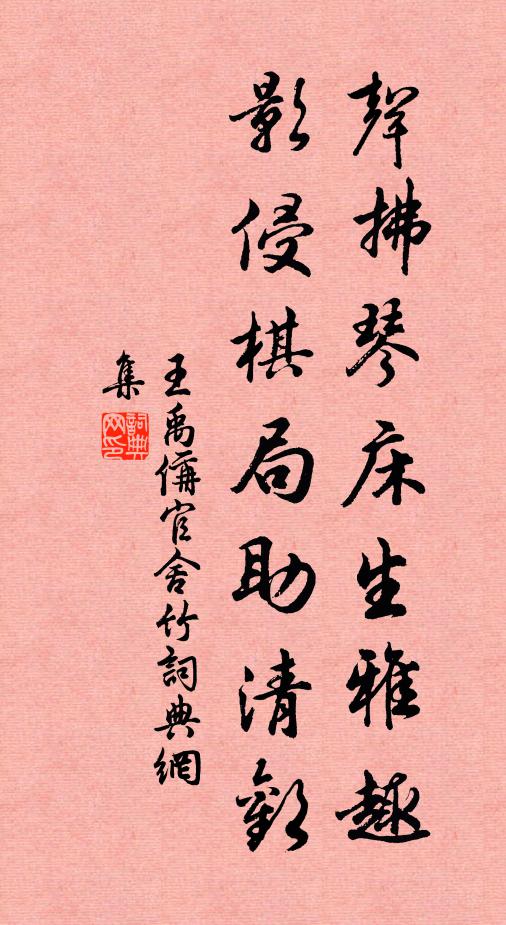 聲拂琴床生雅趣
影侵棋局助清歡
王禹偁官舍竹詞典網
集
詞典
网印